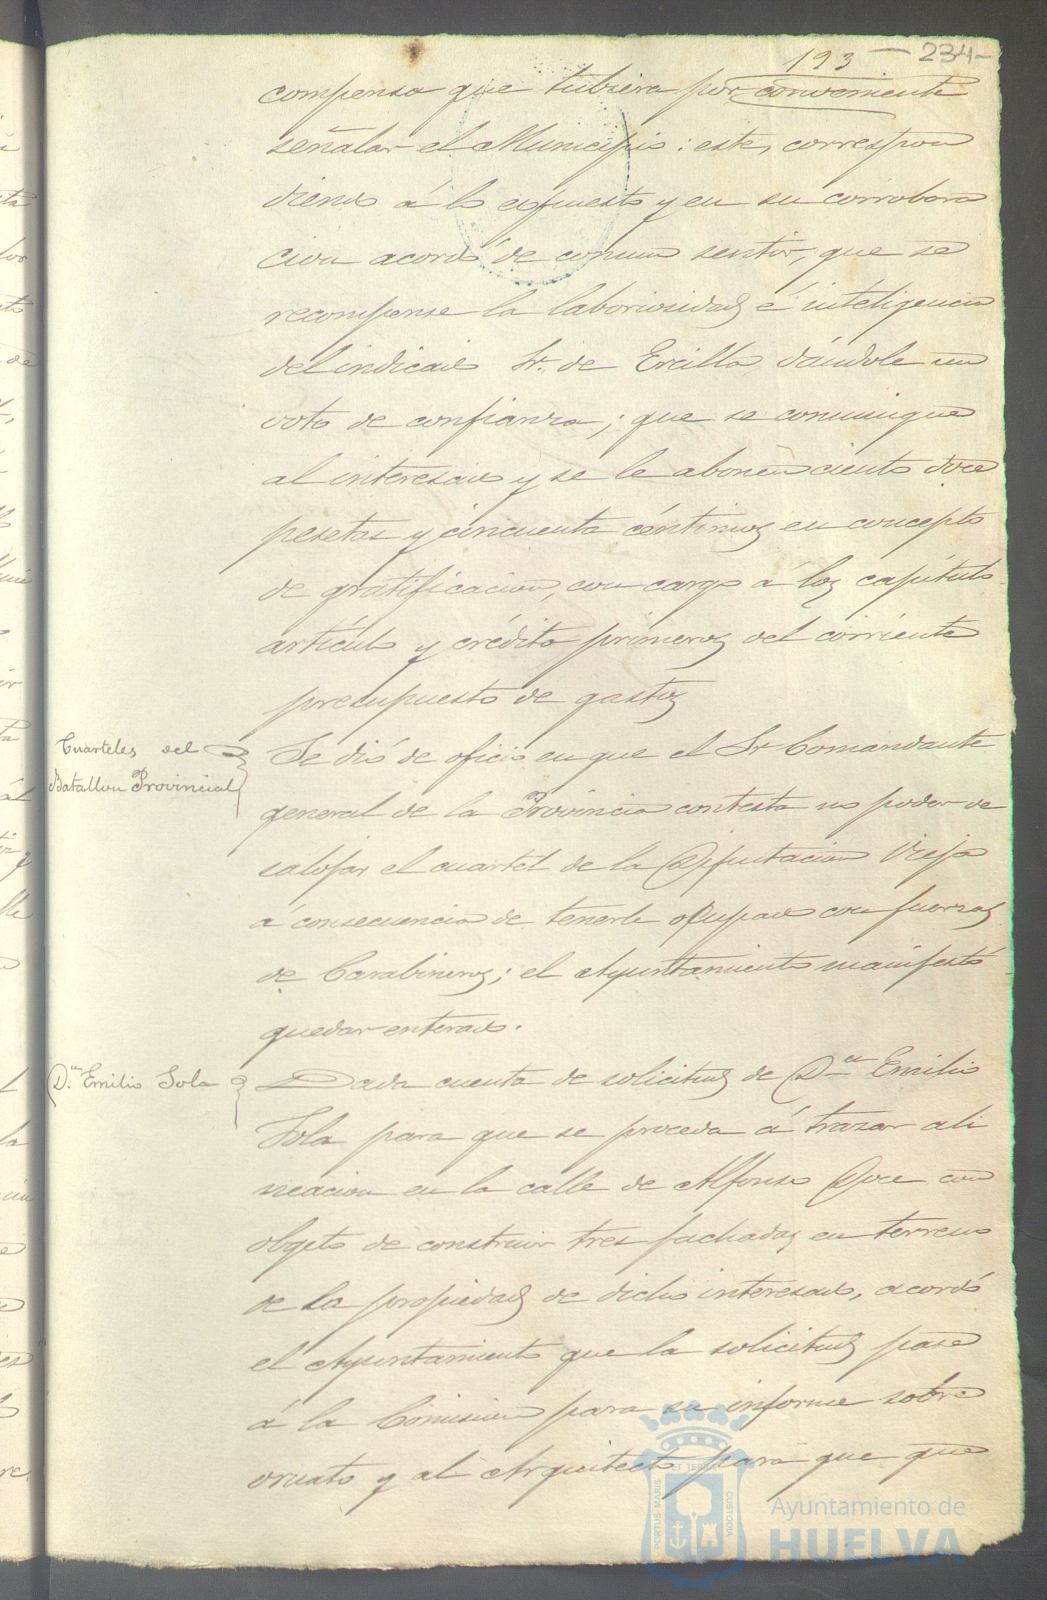 193 - 234-
compensa que tubiera por conveniente
señalar el Municipio: este, correspon
diendo á lo espuesto y en su corrobora
cion acordó de comun sentir, que se
recompense la laboriosidad é inteligencia
del indicado Sr. de Ercilla, dándole un
voto de confianza; que se comunique
al interesado y se le abonen ciento doce
pesetas y cincuenta céntimos en concepto
de gratificacion, con cargo á los capítulo
artículo y crédito primeros del corriente
presupuesto de gastos
Cuarteles del
Batallon Provincial
Se dió de oficio en que el Sr Comandante
general de la Provincia contesta no poder de
salojar el cuartel de la Diputacion Vieja
á consecuencia de tenerlo ocupado con fuerzas
de Carabineros; el Ayuntamiento manifestó
quedar enterado.
D.n Emilio Sola
Dada cuenta de solicitud de D.n Emilio
Sola para que se proceda á trazar ali
neacion en la calle de Alfonso Doce con
objeto de construir tres fachadas en terreno
de la propiedad de dicho interesado, acordó
el Ayuntamiento que la solicitud pase
á la Comision para su informe sobre
ornato y al Arquitecto para que que
PORTUS MARIS ET TERRAE CUSTODIA
Ayuntamiento de
HUELVA